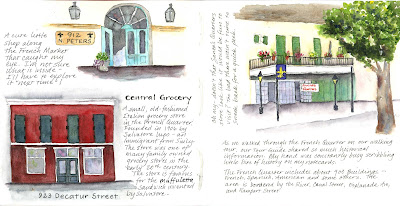 912
N. PETERS
A cute little
shop along
the French Market
that caught my
eye. I'm not sure
what is inside...
I'll have to explore
it "next time"!
Central Grocery
A small, old-fashioned
Italian grocery store
in the French Quarter.
Founded in 1906 by
Salvatore Lupo - an
immigrant from Sicily.
The store was one of
many family owned
grocery stores in the
early 20th century.
The store is famous
for the muffuletta
sandwich invented
by Salvatore.
923 Decatur Street
As we walked through the French Quarter on our walking
tour, our tour guide shared so much historical
information. My hand was constantly busy scribbling
little bits of history in my sketchbook.
The French Quarter includes about 900 Buildings -
French, Spanish, American and some others. The
area is bordered by the River, Canal Street, Esplanade Av.
and Rampart Street.